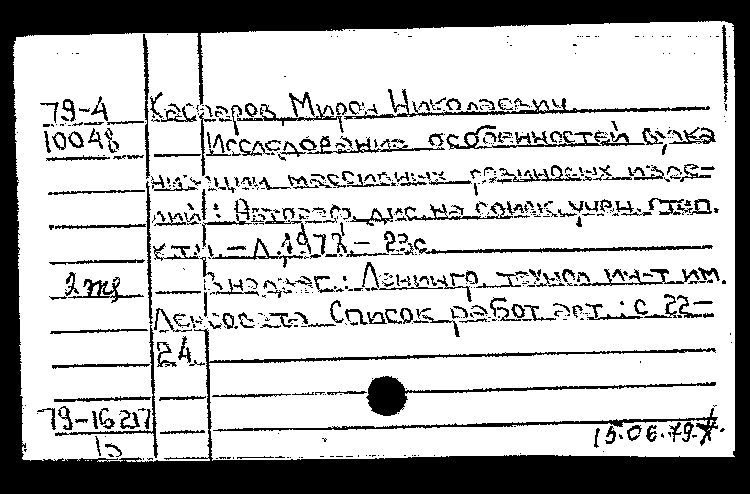 79-4 Каспаров, Мирон Николаевич.
10048 Исследование особенностей вулка
низации массивных резиновых изде-
лий : Автореф. дис. на соиск. учен. степ.
к.т.н. – Л., 1977. – 23с.
2 экз В надзаг.: Ленингр. технол ин-т им.
Ленсовета Список работ авт. : с 22–
24.
79-16217
15.06.79.